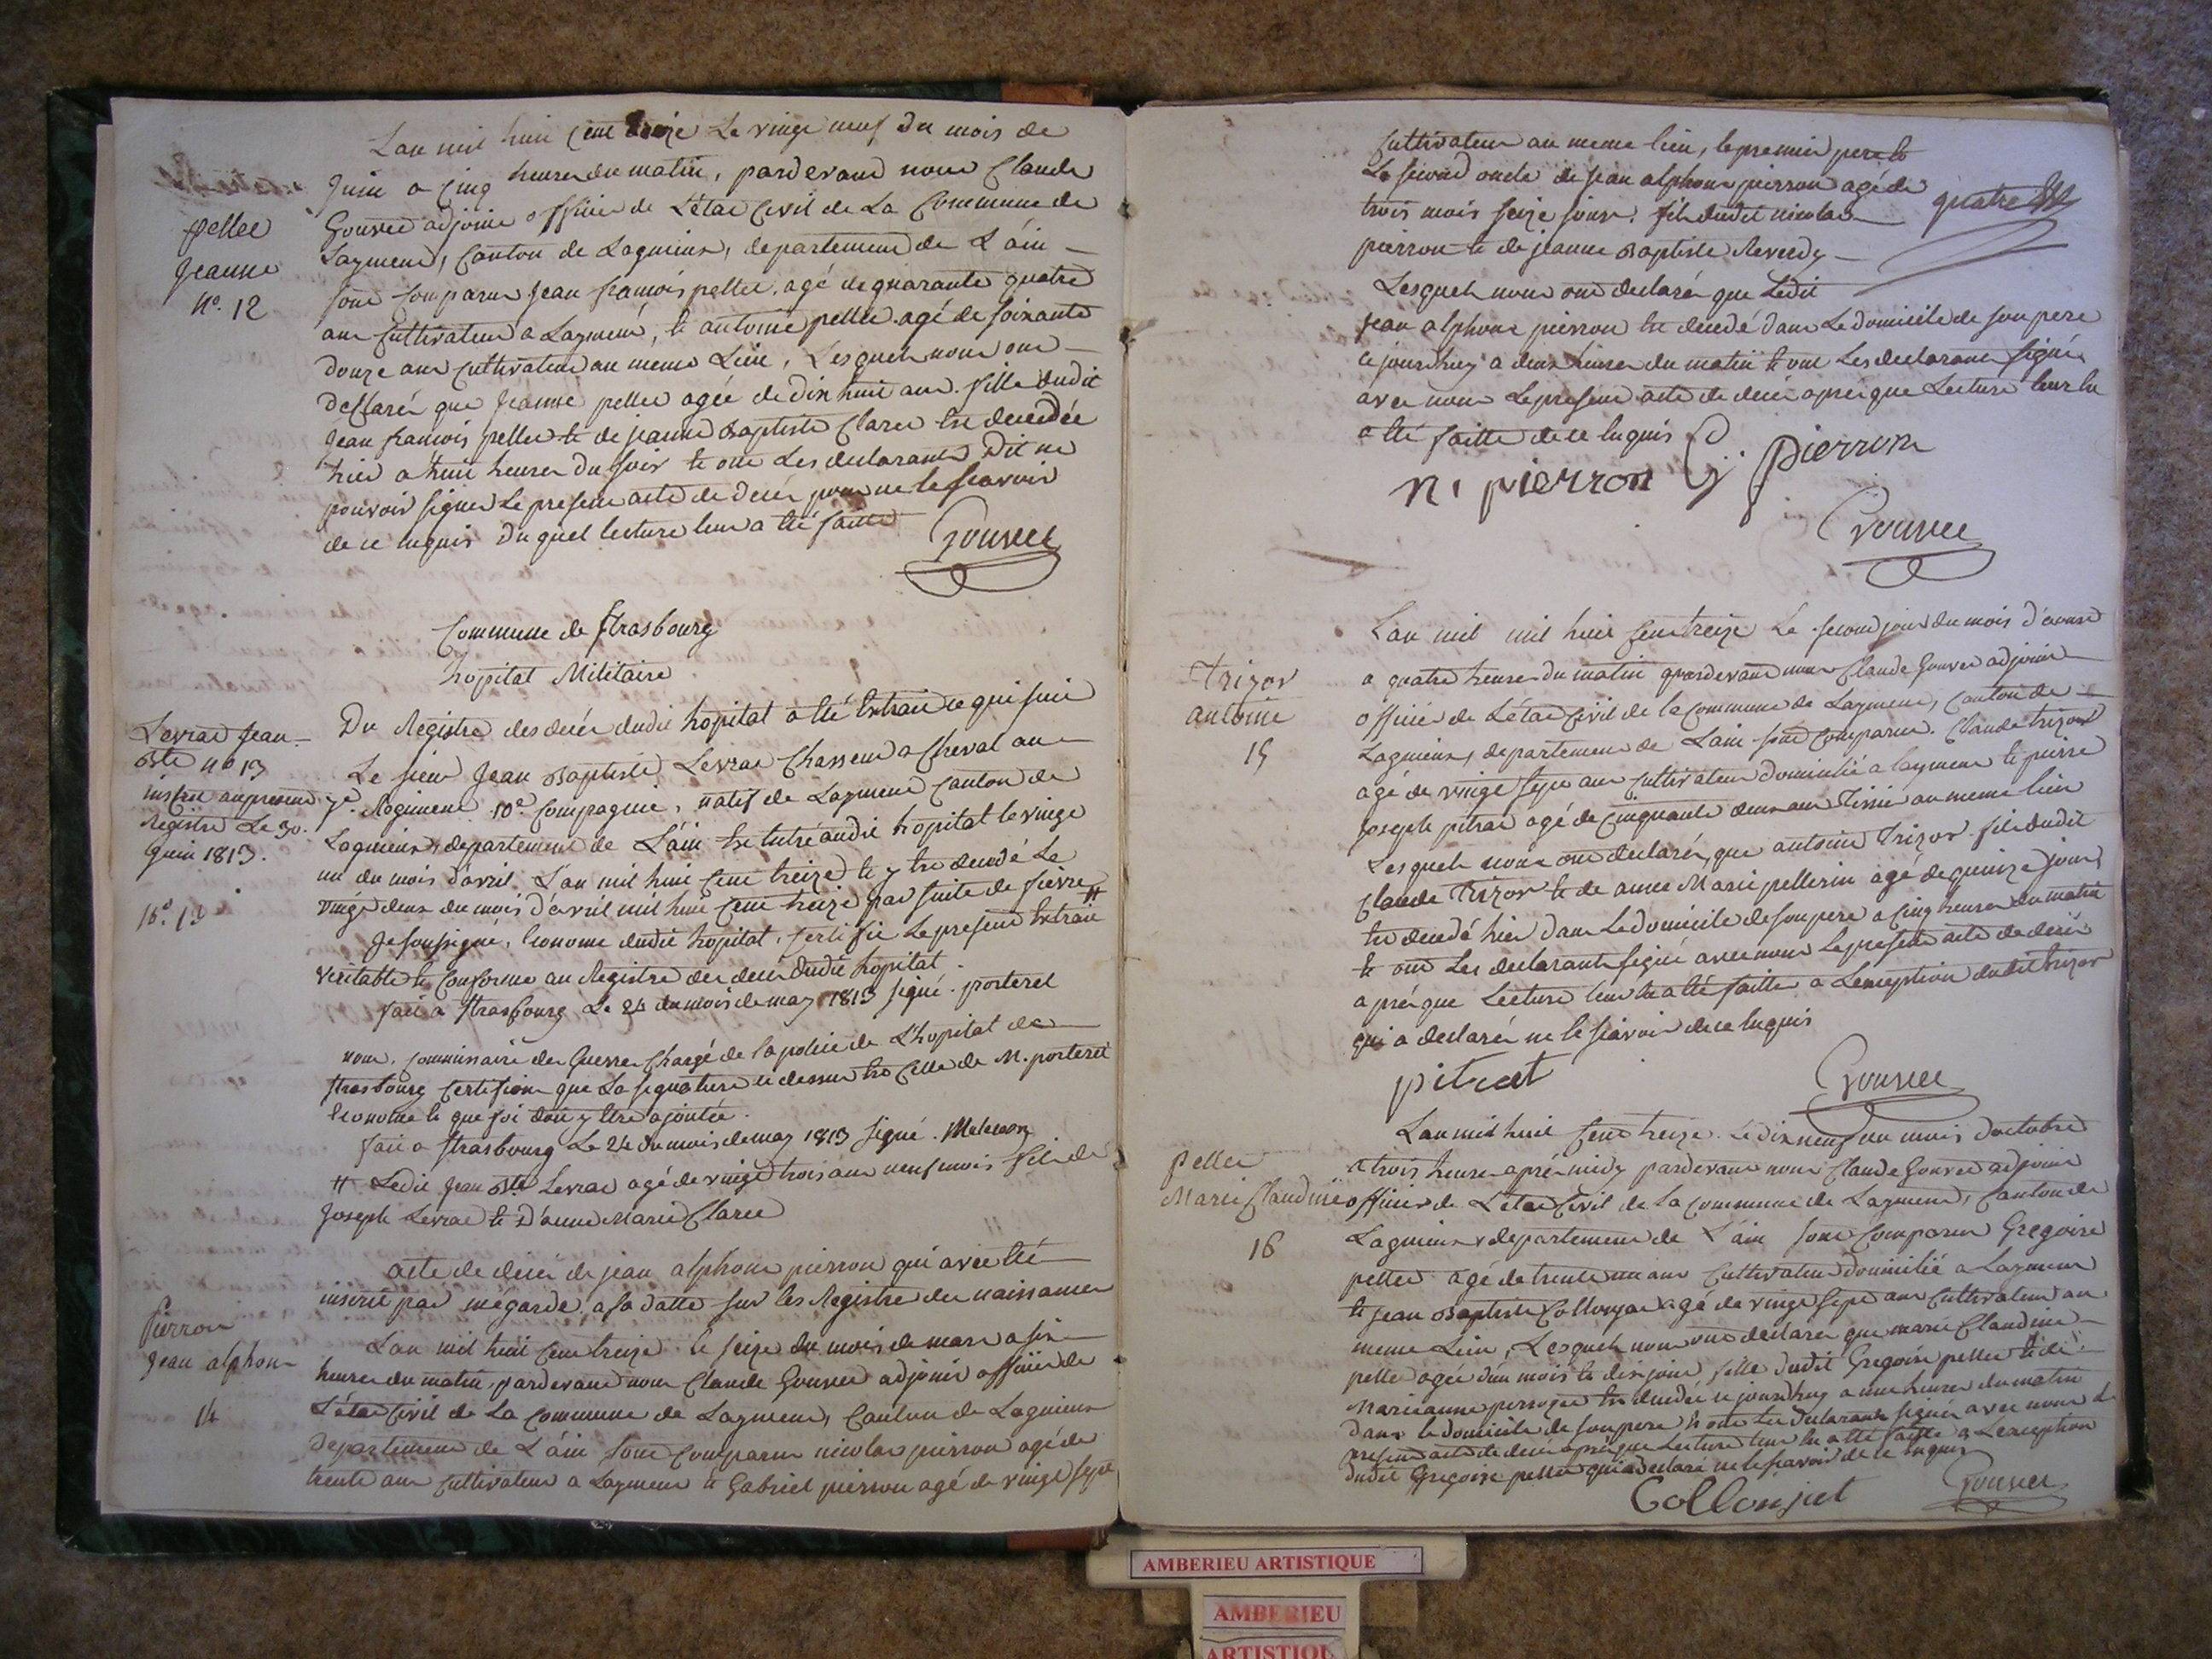 L'an mil huit cent treize Le vingt neuf du mois de
Juin a cinq heures du matin, pardevant nous Claude
Gouvet adjoint officier de L'état Civil de La Commune de
Laymens, Canton de Lagnieux, departement de L'ain
pellet
Jeanne
N°. 12
sont comparus Jean francois pellet, agé de quarante quatre
ans cultivateur a Layment, et antoine pellet agé de soixante
douze ans cultivateur au meme Lieu, Lesquels nous ont
declarés que Jeanne pellet agée de dix huit ans fille dudit
Jean francois pellet et de jeanne Baptiste Claret est decedée
hier a huit heures du soir et ont Les declarants Dit ne
pouvoir signer Le present acte de decés pour ne le scavoir
de ce enquis Duquel lecture leur a été faitte
Gouvet
Commune de Strasbourg
hopital Militaire
Levrat Jean
Bte n° 13
inscrit au present
Registre Le 30.
juin 1813.
Du Registre des decés dudit hopital a été Extrait ce qui suit
Le sieur Jean Baptiste Levrat Chasseur a Cheval au
7e. Regiment 10e. Compagnie, natif de Layment Canton de
Lagnieux, departement de L'ain est Entré audit hopital le vingt
un du mois d'avril L'an mil huit cent treize et y est decedé Le
vingt deux du mois d'avril mil huit cent treize par suite de fievre #
Je soussigné, Econome dudit hopital, Certifie Le present Extrait
veritable et Conforme au Registre des decés dudit hopital.
fait a Strasbourg Le 24 du mois de may 1813 signé. porteret
nous. Commissaire des Guerres Chargé de la police de L'hopital de
Strasbourg Certifions que La signature ci dessus est Celle de M. porteret
Econome et que foi doit y Etre ajoutée.
fait a Strasbourg Le 24 du mois de may 1813 signé.
# Ledit Jean Bte Levrat agé de vingt trois ans neuf mois fils de
Joseph Levrat et D'anne Marie Claret
acte de decés de jean alphonse pierron qui avait été
inscrit par megarde a sa datte sur les Registre des naissances
Pierron
Jean alphonse
14
L'an mil huit cent treize le seize du mois de mars a six
heures du matin, pardevant nous Claude Gouvet adjoint officier de
L'état Civil de La Commune de Layment, Canton de Lagnieux
Departement de L'ain sont Comparus nicolas pierron agé de
trente ans Cultivateur a Layment et Gabriel pierron agé de vingt sept
Cultivateur au meme lieu, le premier pere et
Le second oncle de jean alphonse pierron agé de
trois mois seize jours. fils dudit nicolas
pierron et de jeanne Baptiste Reverdy
Lesquels nous ont declarés que Ledit
jean alphonse pierron est decedé dans Le domicile de son pere
ce jourdhuy a deux heures du matin et ont Les declarants signés
avec nous Le present acte de decés aprés que Lecture leur En
a été faitte de ce Enquis
n. pierron g. pierron
Gouvet
L'an mil mil huit cent treize Le second jour du mois d'aoust
Trizor
antoine
15
a quatre heures du matin pardevant nous Claude Gouvet adjoint
officier de L'état Civil de la Commune de Layment, Canton de
Lagnieux, departement de L'ain sont Comparus Claude trizor
agé de vingt sept ans Cultivateur domicilié a layment et pierre
joseph pitrat agé de Cinquante deux ans Tissier au meme lieu
Lesquels nous ont declarés, que antoine Trizor fils dudit
Claude Trizor et de anne Marie pellerin agé de quinze jours
est decedé hier dans Le domicile de son pere a Cinq heures du matin
et ont Les declarants signé avec nous Le present acte de decés
aprés que Lecture leur En a été faitte a L'exception dudit trizor
qui a declaré ne le scavoir de ce Enquis
pitrat
Gouvet
L'an mil huit cent treize. Le dix neuf du mois d'octobre
Pellet
Marie Claudine
16
a trois heures aprés midy pardevant nous Claude Gouvet adjoint
officier de L'état Civil de La Commune de Layment, Canton de
Lagnieux departement de L'ain sont Comparus Gregoire
pellet agé de trente un ans Cultivateur domicilié a Layment
et jean Baptiste Collonjat agé de vingt sept ans Cultivateur au
meme Lieu, Lesquels nous ont declarés que marie Claudine
pellet agée d'un mois et dix jours, fille dudit Gregoire pellet et de
Marie anne est decedée ce jourdhuy a une heures du matin
dans le domicile de son pere Et ont Les declarants signés avec nous Le
present acte de decés aprés que Lecture leur En a été faitte a L'exception
dudit Gregoire pellet qui a declaré ne le scavoir de ce Enquis
Collonjat
Gouvet
AMBERIEU ARTISTIQUE
AMBERIEU
ARTISTIQUE